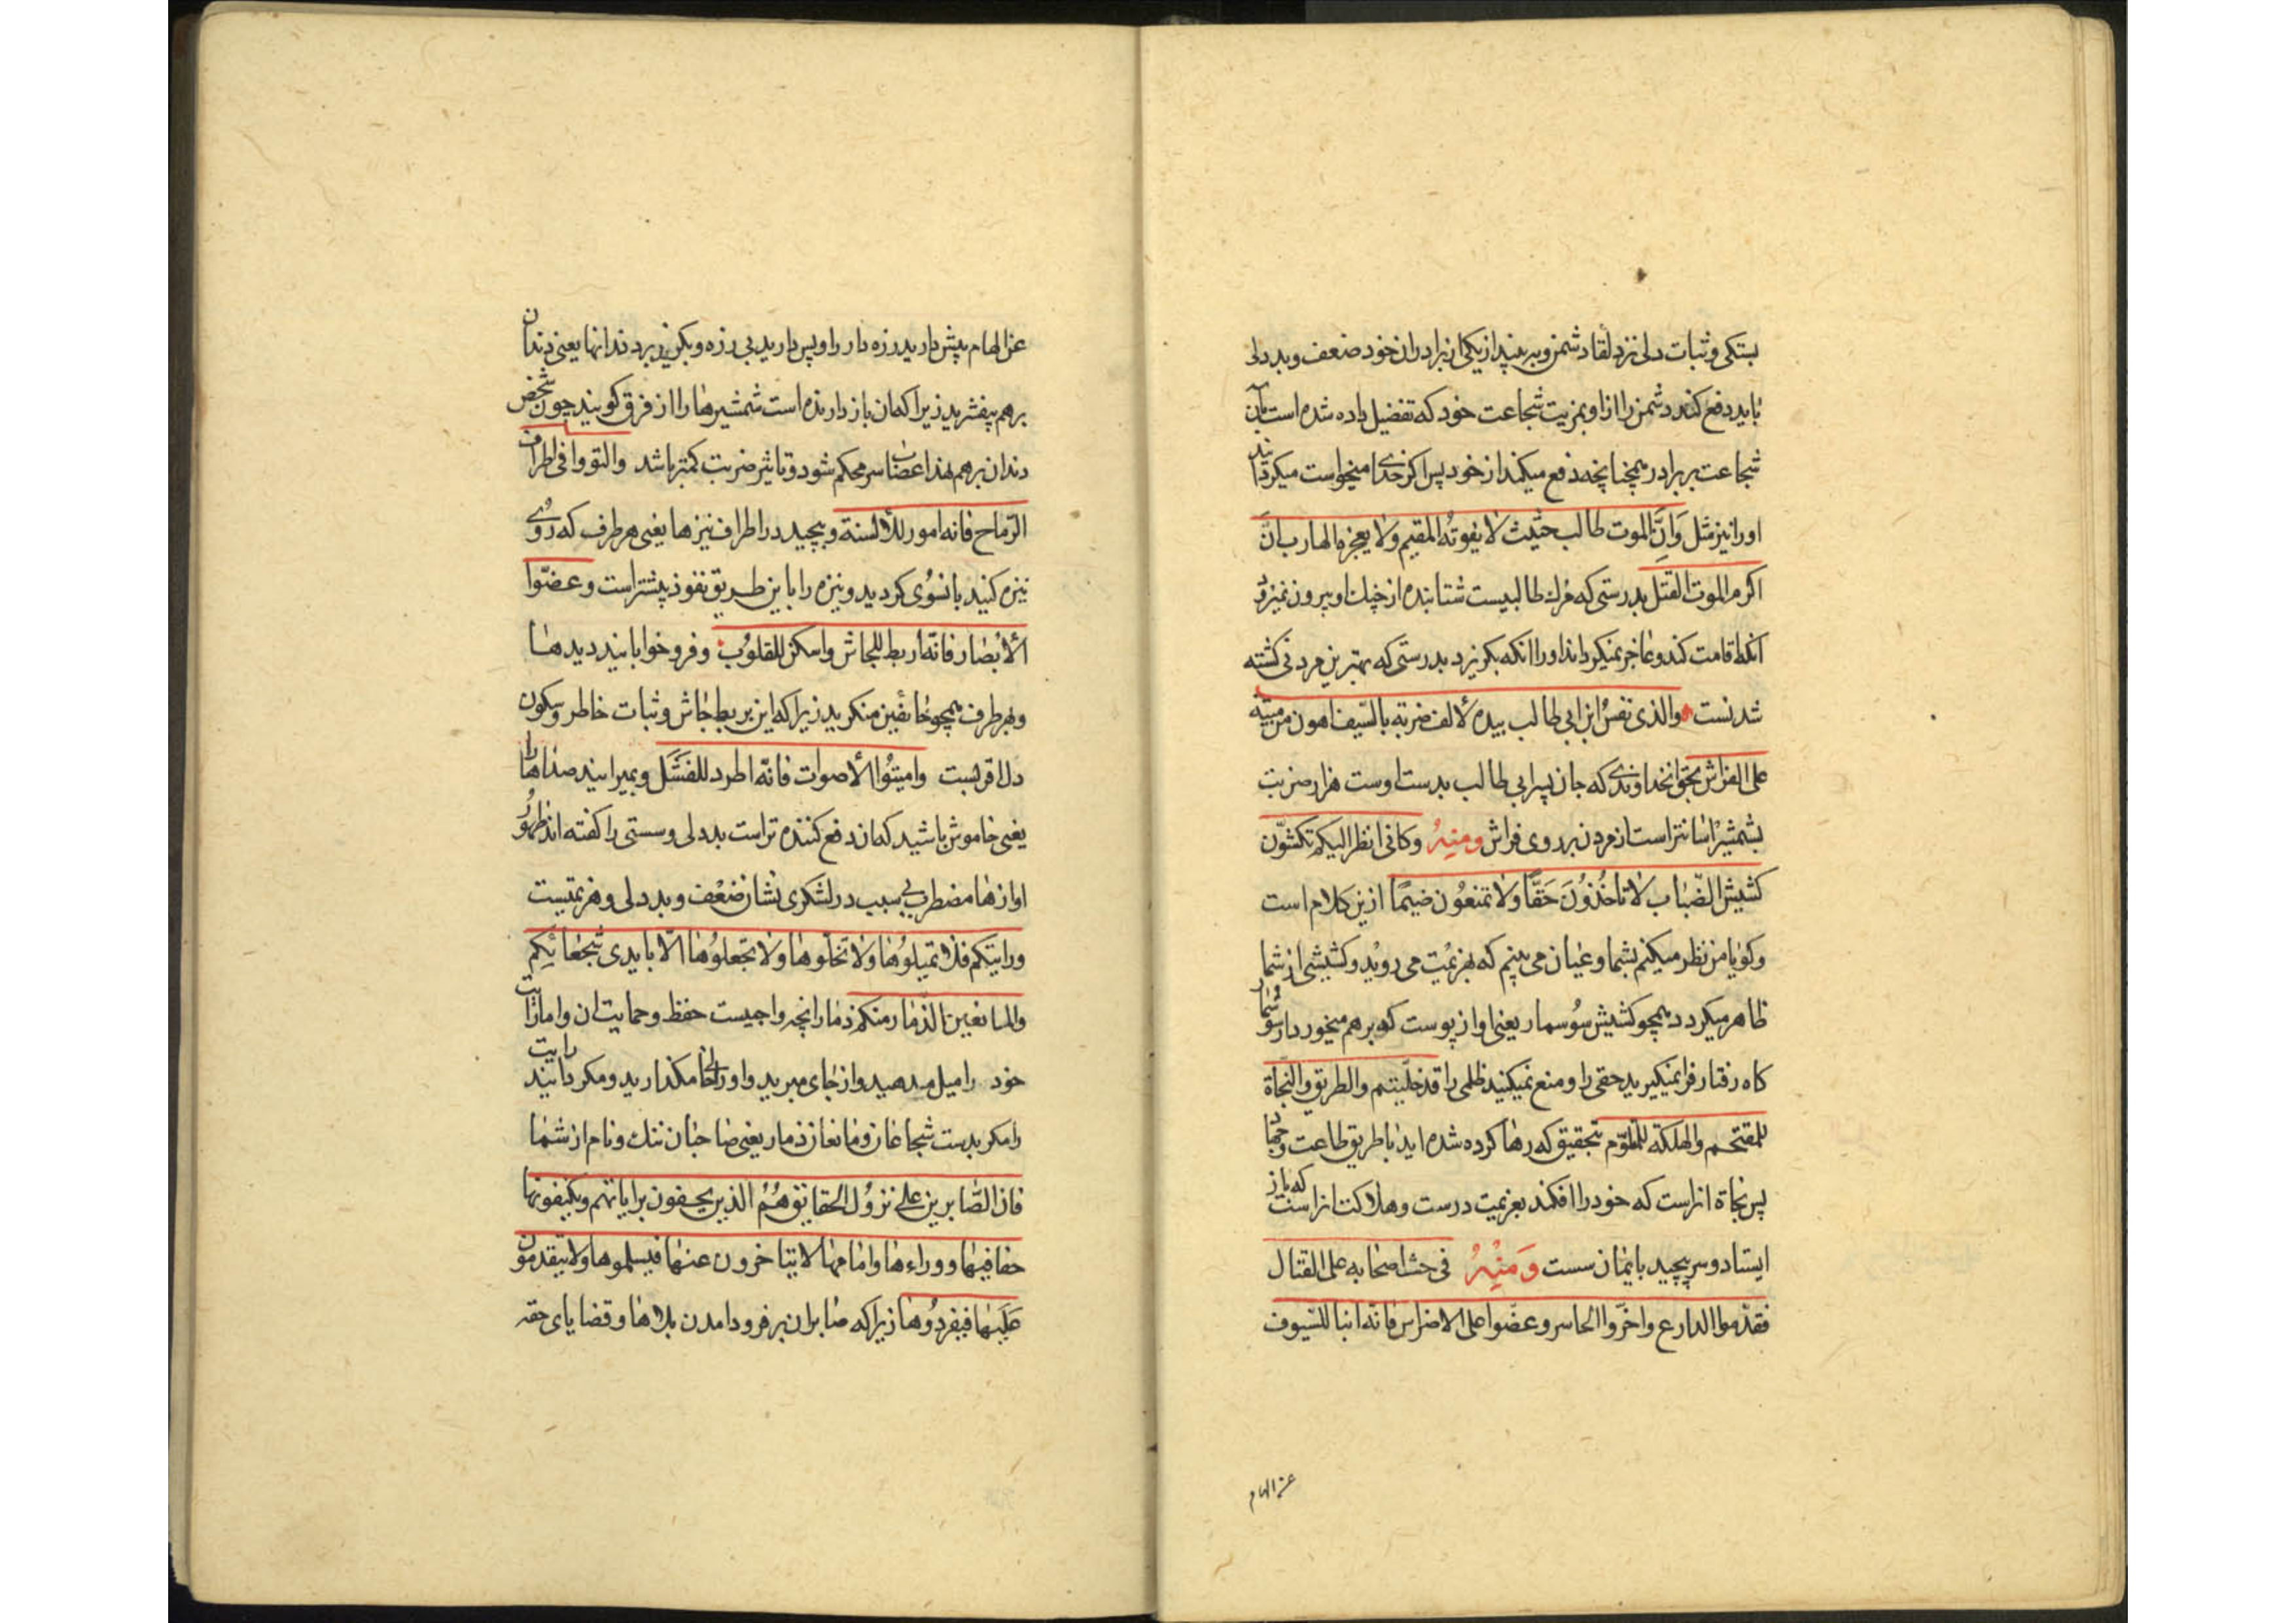 بستکی و ثبات دلی نزد لقاء دشمن و ببیند از یکی از برادران خود ضعف و بددلی
باید دفع کند دشمن را از او بمزیت شجاعت خود که تفضیل داده شده است بآن
شجاعت بر برادر همچنانچه دفع میکند از خود پس اکر خدای میخواست میکردانید
او را نیز مثل وَاِنَّ الموت طالب حثیث لا یفوته المقیم ولا یعجزه الهارب انَّ
اکرم الموت القتل بدرستی که مرك طالبیست شتابنده از چنك او بیرون نمیرود
آنکه اقامت کند و عاجز نمیکرداند او را انکه بکریزد بدرستی که بهترین مردنی کشته
شدنست والذی نفسُ ابن ابی طالب بیده لألف ضربة بالسّیف اهون من میتة
علی الفراش بحق انخداوندی که جان پسر ابی طالب بدست اوست هزار ضربت
بشمشیر اسانتر است از مردن بر روی فراش ومنهُ وکانی انظر الیکم تکشّون
کشیش الضّباب لا تاخُذُونَ حَقًّا ولا تمنعُون ضیمًا ازین کلام است
و کویا من نظر میکنم بشما و عیان می بینم که بهزیمت می روید و کشیشی از شما
ظاهر میکردد همچو کشیش سُوسمار یعنی اواز پوست که برهم میخورد از سوسمار
کاه رفتار فرا نمیکیرید حقی را و منع نمیکنید ظلمی را قد خلّیتم والطریق والنّجاة
للمقتحم والهلکة للمتلوّم بتحقیق که رها کرده شده اید با طریق طاعت وجهاد
پس نجاة انراست که خود را افکند بعزیمت درست و هلاکت انراست که باز
ایستاد و سر پیچید بایمان سست وَمنْهُ فی حث اصحابه علی القتال
فقدّموا الدارع واخّروا الحاسر وعضّوا علی الاضراس فانّه انبا للسّیوف
عن الهام
عن الهام پیش دارید زره دار را و پس دارید بی زره و بکزید بر دندانها یعنی دندان
برهم بیفشرید زیرا که ان باز دارنده است شمشیرها را از فرق کویند چون شخص
دندان برهم نهد اعصاب سر محکم شود و تاثیر ضربت کمتر باشد والتووا فی اطراف
الرّماح فانه امور للألسنة وبپیچید در اطراف نیزها یعنی هر طرف که رُوی
نیزه کنید بانسُوی کردید و نیزه را باین طریق نفوذ پیشتر است وعضّوا
الأبصار فانّه اربط للجاش واسکن للقلوُب وفرو خوابانید دیدها
و بهر طرف همچو خائفین منکرید زیرا که این بربط جاش و ثبات خاطر و سکون
دل اقربست وامیتُوا الأصوات فانّه اطرد للفَشَل وبمیرانید صداها را
یعنی خاموش باشید که ان دفع کننده تراست بددلی و سستی را کفته اند ظهُور
اوازها مضطرب بی سبب در لشکری نشان ضعْف و بددلی و هزیمتیست
ورایتکم فلا تمیلوُها ولا تخلّوها ولا تجعلوُها الّا بایدی شجعانِکم
والمانعین الذّمار منکم ذمار انچه واجبست حفظ وحمایت ان واما رایت
خود را میل مدهید و از جای مبرید و او را خالی مکذارید و مکردانید رایت
را مکر بدست شجاعان و مانعان ذمار یعنی صاحبان ننك و نام از شما
فان الصّابرین علی نزوُل الحقائق هُمُ الذین یحفون برایاتهم ویکنفونها
حفافیها ووراءها وامامها لا یتاخرون عنها فیسلموها ولا یتقدمون
عَلَیها فیفردُوها زیرا که صابران بر فرود امدن بلاها و قضایای حقه